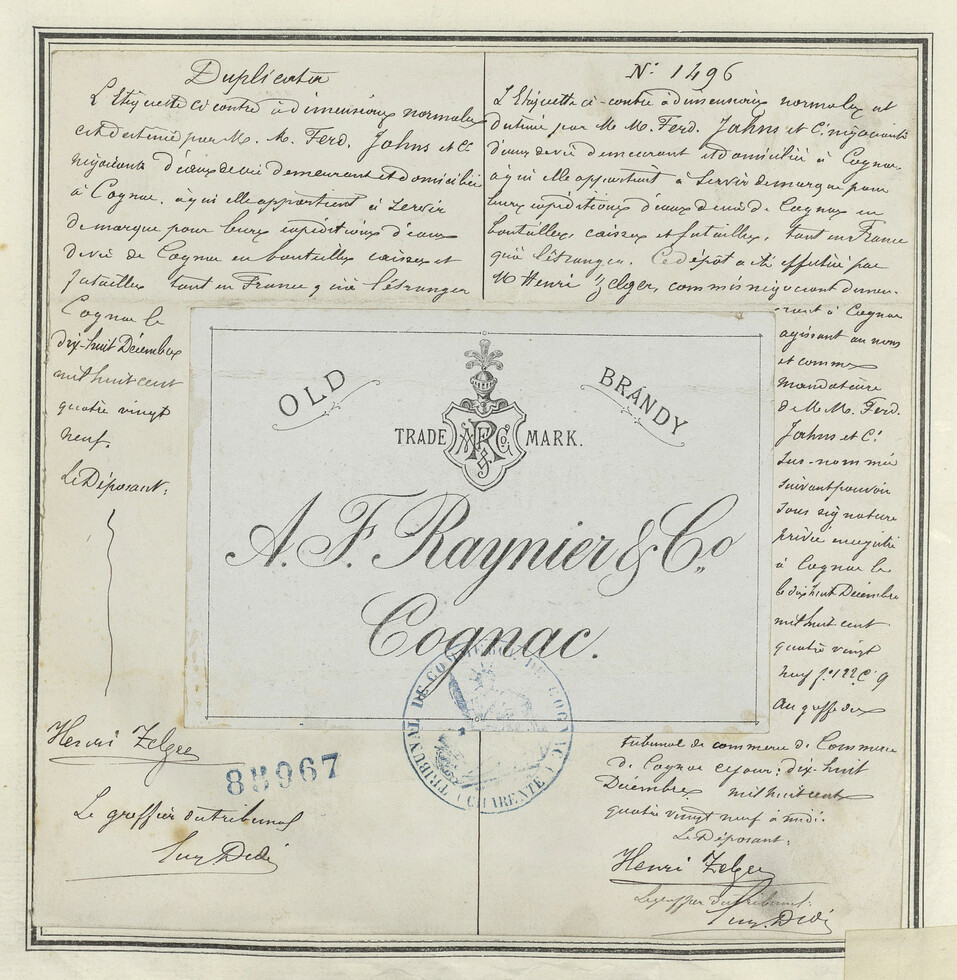 Duplicata
L'Etiquette ci contre à dimensions normales
est destinée par M. M. Ferd. Jahns et Cie
négociants d'eaux de vie demeurant et domiciliés
à Cognac, à qui elle appartient à servir
de marque pour leurs expéditions d'eaux
de vie de Cognac en bouteilles caisses et
futailles tant en France qu'à l'étranger
Cognac le
dix-huit Décembre
mil huit cent
quatre vingt
neuf.
Le Déposant:
Henri Zelger
85967
Le greffier du tribunal
N° 1496
L'Etiquette ci-contre à dimensions normales est
destinée par M. M. Ferd. Jahns et Cie négociants
d'eaux de vie demeurant et domiciliés à Cognac
à qui elle appartient à servir de marque pour
leurs expéditions d'eaux de vie de Cognac en
bouteilles, caisses et futailles, tant en France
qu'à l'étranger. Ce dépôt a été effectué par
M Henri Zelger, commis négociant demeu-
rant à Cognac
agissant au nom
et comme
mandataire
de M. M. Ferd.
Jahns et Cie
sus-nommés
suivant pouvoir
sous signature
privée enregistré
à Cognac le
le dix huit Décembre
mil huit cent
quatre vingt
neuf fo 122 Co 9
au greffe du
tribunal de commerce de Commerce
de Cognac ce jour: dix-huit
Décembre mil huit cent
quatre vingt neuf à midi.
Le Déposant:
Henri Zelger
Le greffier du tribunal:
OLD BRANDY
TRADE A F R & Co MARK.
A. F. Raynier & Co.,
Cognac.
TRIBUNAL DE COMMERCE DE COGNAC
(CHARENTE)